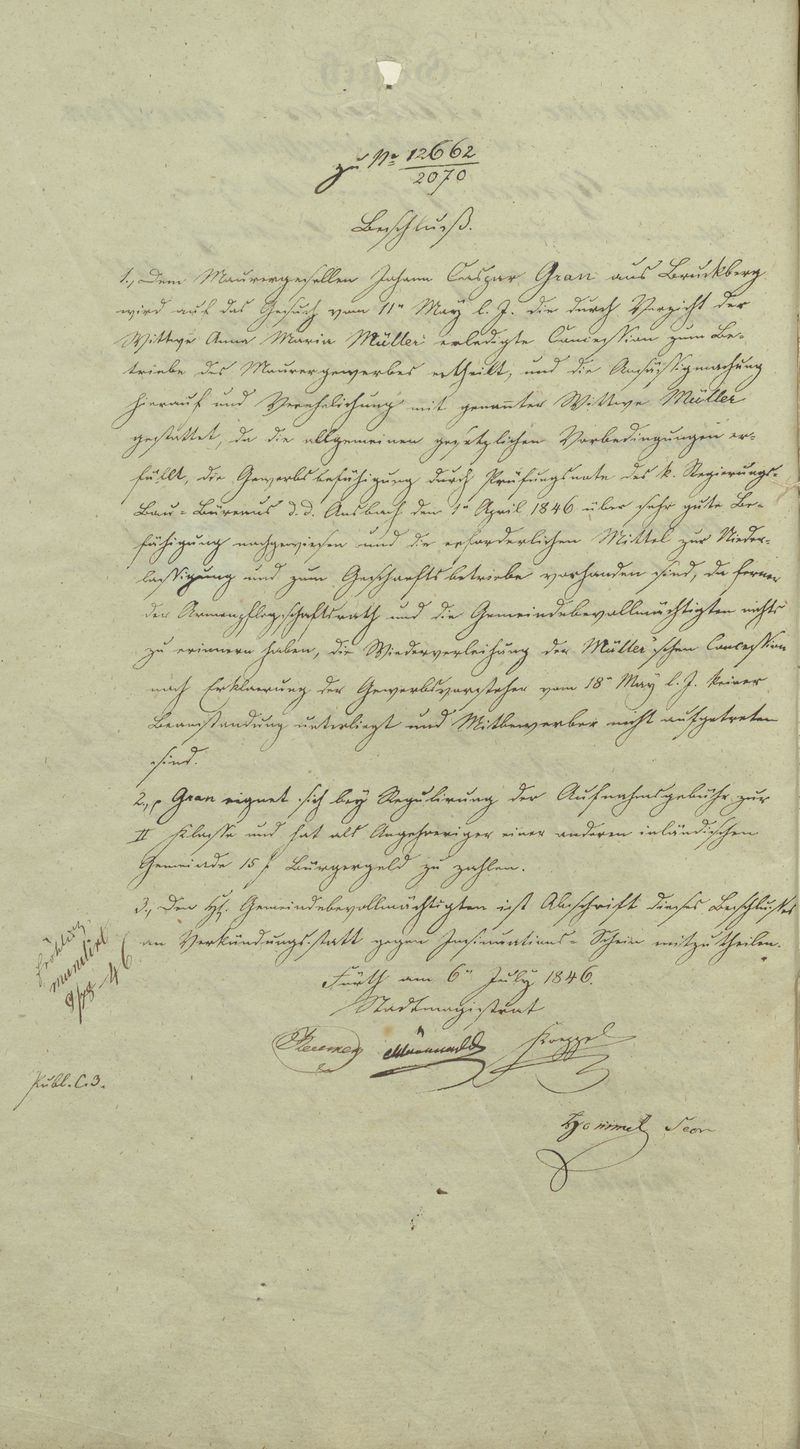 zu No 12662
2070
Beschluß.
1., Dem Maurergesellen Johann Caspar Gran aus Bruckberg
wird auf das Gesuch vom 11n May l. J. die durch Verzicht der
Wittwe Anna Maria Müller erledigte Concession zum Be-
triebe des Maurergewerbes ertheilt, und die Ansässigmachung
hierauf und Verehelichung mit genannter Wittwe Müller
gestattet, da die allgemeinen gesetzlichen Vorbedingungen er-
füllt, die Gewerbsbefähigung durch Prüfungsnote des k. Regierungs-
Bau-Büreaus d. d. Ansbach den 1n April 1846 über sehr gute Be-
fähigung nachgewiesen und die erforderlichen Mittel zur Nieder-
lassigung und zum Geschaeftsbetriebe vorhanden sind, da ferner
der Armenpflegschaftsrath und die Gemeindebevollmächtigten nichts
zu erinnern haben, die Wiederverleihung der Müller'schen Concession
nach Erklaerung der Gewerbsvorsteher vom 18n May l. J. keiner
Beanstandung unterliegt und Mitbewerber nicht aufgetreten
sind.
2., Gran eignet sich bey Regulirung der Aufnahmsgebühr zur
II Klasse und hat als Angehoeriger einer anderen inländischen
Gemeinde 15 f Bürgergeld zu zahlen.
3., Den Hr. Gemeindebevollmächtigten ist Abschrift dieses Beschlußes
an Verkündungsstatt gegen Insinuations-Schein mitzutheilen.
Fürth am 6n July 1846.
Stadtmagistrat
mundirt
46
Koeppel
Publ. C. 3.
Hommel